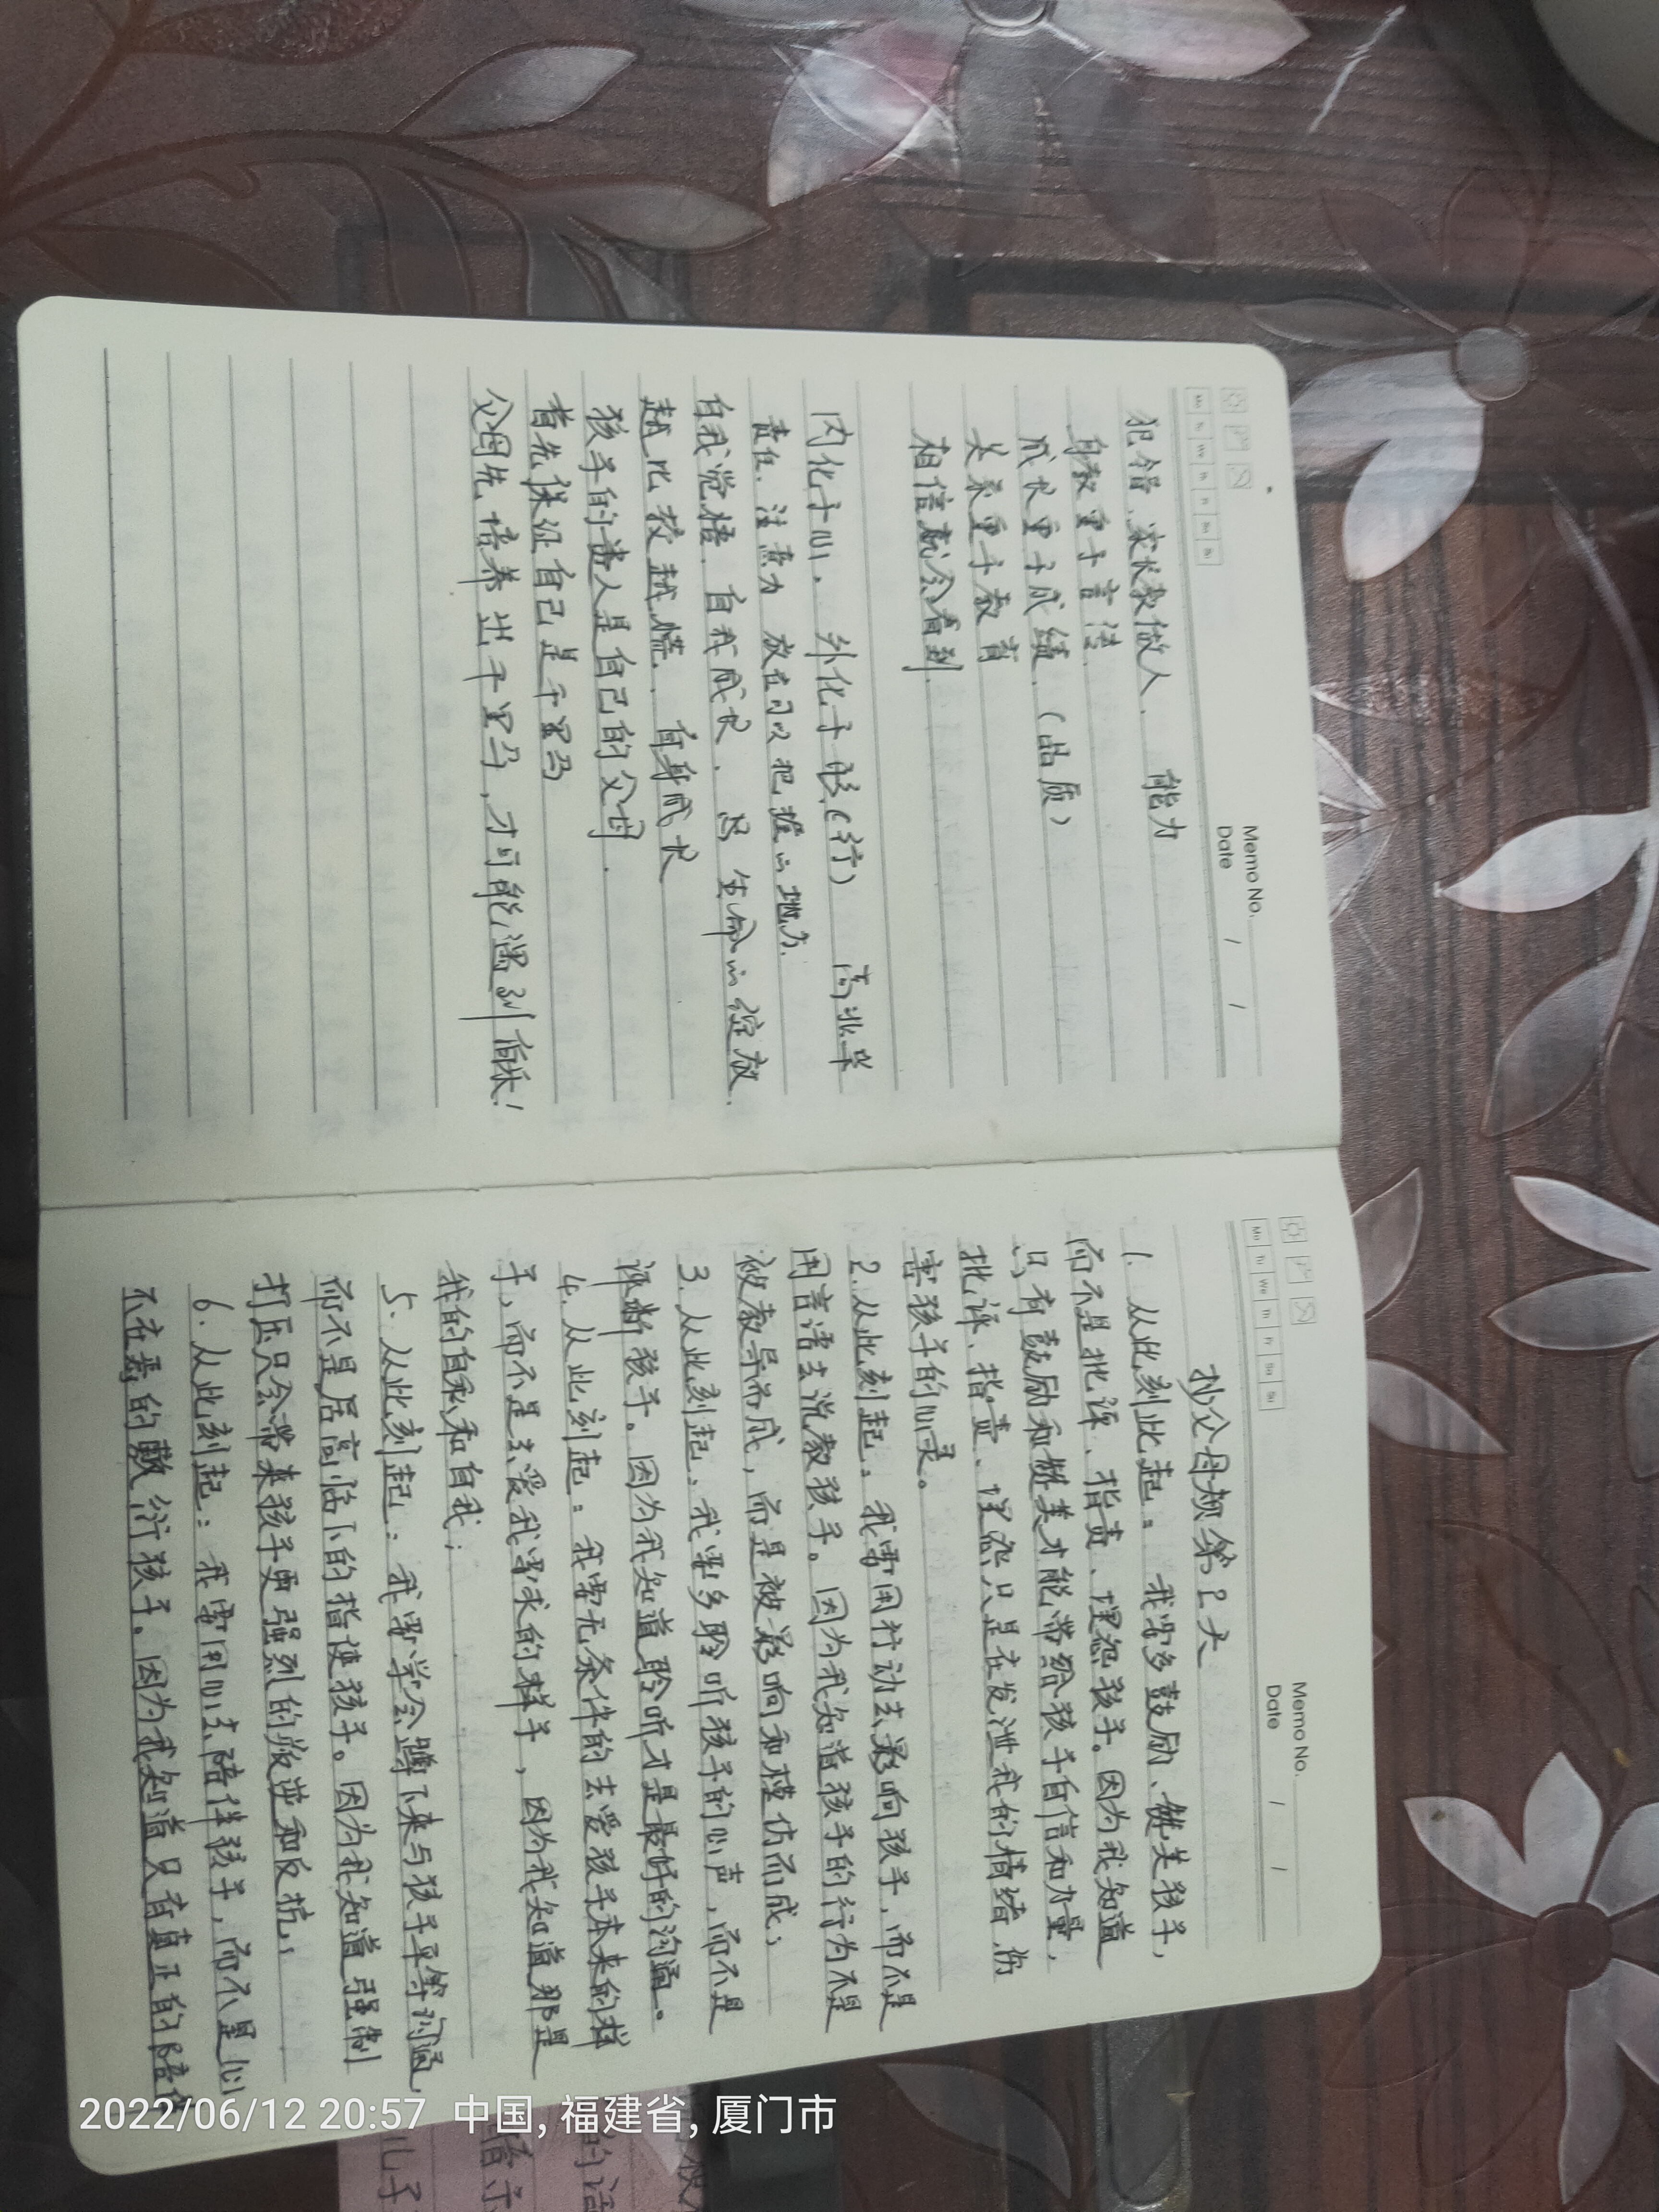 Memo No.
Date / /
Mo Tu We Th Fr Sa Su
犯错, 家长教做人. 能力
身教重于言传.
成长重于成绩.(品质)
关系重于教育
相信就会看到.
内化于心, 外化于形(行) 高业学
责任. 注意力 放在可以把握的地方.
自我觉悟. 自我成长. 是 生命的绽放.
越比较越慌. 自身成长
孩子的贵人是自己的父母.
首先保证自己是千里马
父母先培养出千里马,才可能遇到伯乐!
Memo No.
Date / /
Mo Tu We Th Fr Sa Su
抄父母规第2天
1. 从此刻此起: 我需多鼓励、赞美孩子,
而不是批评、指责、埋怨孩子。因为我知道
只有鼓励和赞美才能带给孩子自信和力量,
批评、指责、埋怨只是在发泄我的情绪,伤
害孩子的心灵。
2.从此刻起: 我需用行动去影响孩子,而不是
用言语去说教孩子。因为我知道孩子的行为不是
被教导而成,而是被影响和模仿而成;
3.从此刻起、我需多聆听孩子的心声,而不是
评断孩子。因为我知道聆听才是最好的沟通。
4.从此刻起: 我需无条件的去爱孩子本来的样
子,而不是去爱我需求的样子,因为我知道那是
我的自私和自我;
5.从此刻起: 我需学会蹲下来与孩子平等沟通,
而不是居高临下的指使孩子。因为我知道强制
打压只会带来孩子更强烈的叛逆和反抗;
6.从此刻起: 我需用心去陪伴孩子,而不是心
不在焉的敷衍孩子。因为我知道只有真正的陪伴
2022/06/12 20:57 中国, 福建省, 厦门市